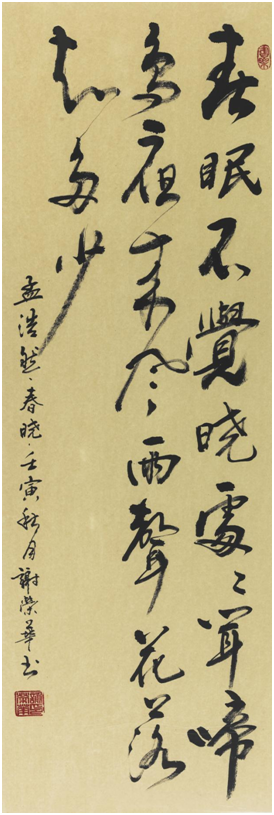 春眠不覺晓處〻聞啼
鳥夜来风雨聲花落
知多少
孟浩然·春晓·壬寅秋月謝榮華书